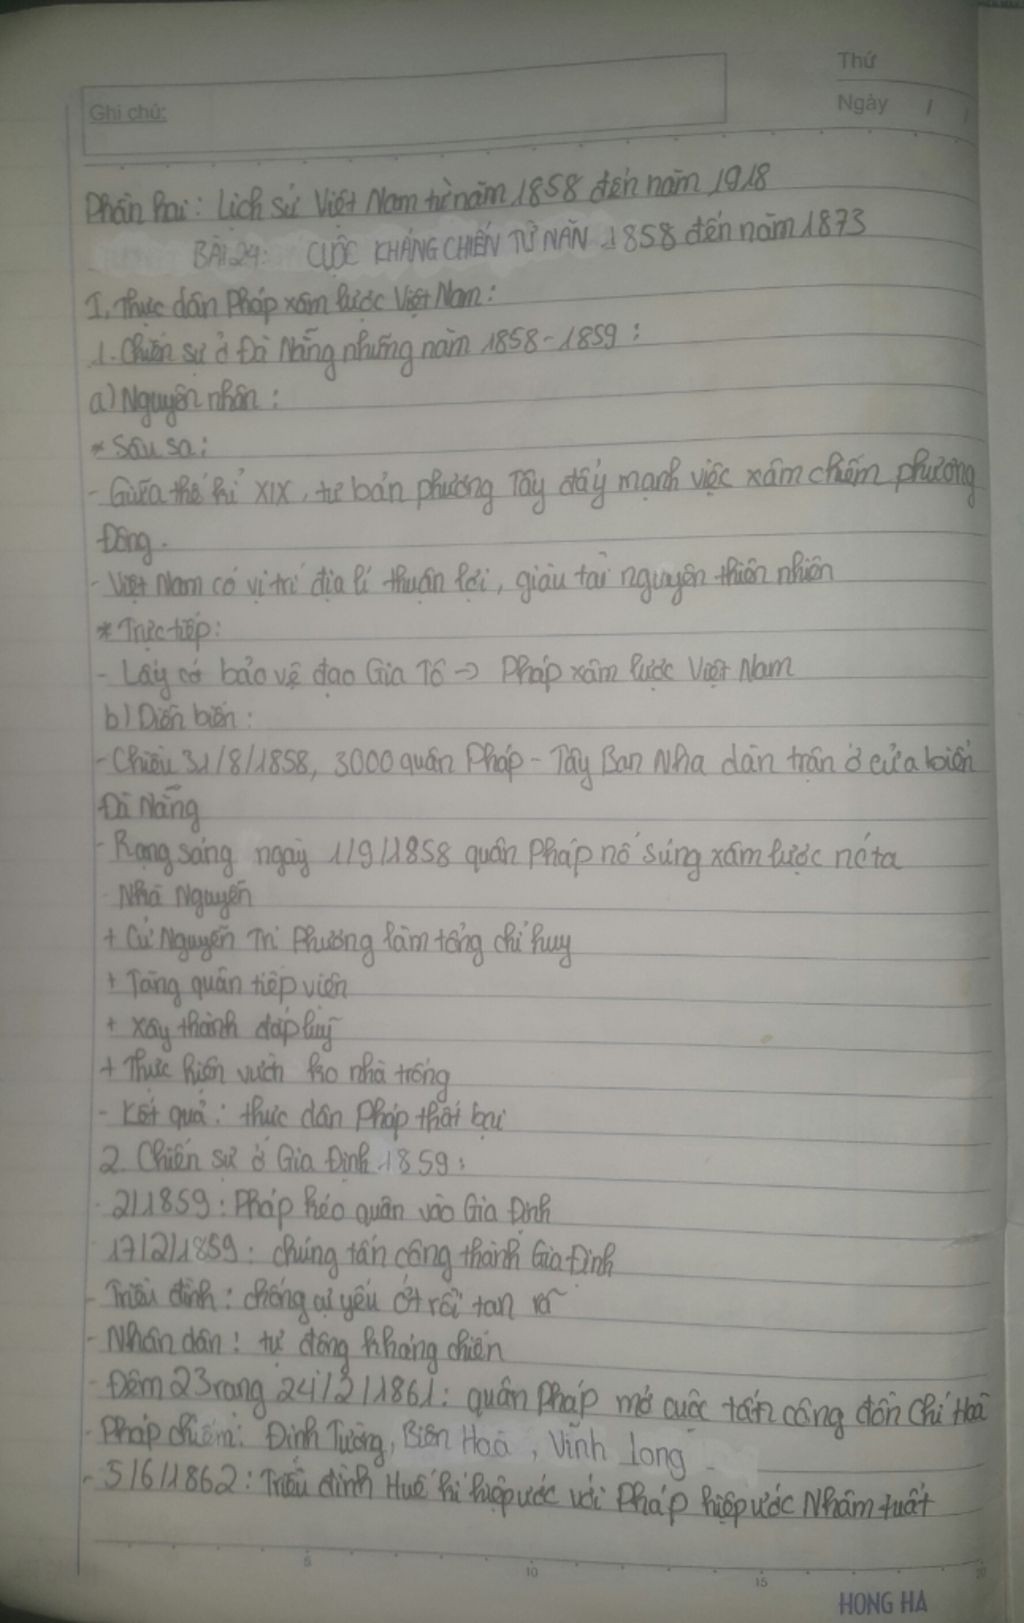 Thứ
Ghi chú:
Ngày / /
Phần hai: Lịch sử Việt Nam từ năm 1858 đến năm 1918
BÀI 24: CUỘC KHÁNG CHIẾN TỪ NĂN 1858 đến năm 1873
I, Thực dân Pháp xâm lược Việt Nam:
1. Chiến sự ở Đà Nẵng những năm 1858-1859:
a) Nguyên nhân:
* Sâu sa:
- Giữa thế kỉ XIX, tư bản phương Tây đẩy mạnh việc xâm chiếm phương
Đông.
- Việt Nam có vị trí địa lí thuận lợi, giàu tài nguyên thiên nhiên
* Trực tiếp:
- Lấy cớ bảo vệ đạo Gia Tô -> Pháp xâm lược Việt Nam
b) Diễn biến:
- Chiều 31/8/1858, 3000 quân Pháp - Tây Ban Nha dàn trận ở cửa biển
Đà Nẵng
- Rạng sáng ngày 1/9/1858 quân Pháp nổ súng xâm lược nc ta
- Nhà Nguyễn
+ Cử Nguyễn Tri Phương làm tổng chỉ huy
+ Tăng quân tiếp viện
+ Xây thành đáp luỹ
+ Thực hiện vườn ko nhà trống
- Kết quả: thực dân Pháp thất bại
2. Chiến sự ở Gia Định 1859:
- 2/1859: Pháp kéo quân vào Gia Định
17/2/1859: chúng tấn công thành Gia Định
- Triều đình: chống cự yếu ớt rồi tan rã
- Nhân dân: tự động kháng chiến
- Đêm 23 rạng 24/2/1861: quân Pháp mở cuộc tấn công đồn Chí Hoà
- Pháp chiếm: Định Tường, Biên Hoà, Vĩnh Long
- 5/6/1862: Triều đình Huế kí hiệp ước với Pháp hiệp ước Nhâm tuất
5 10 15 20
HONG HA